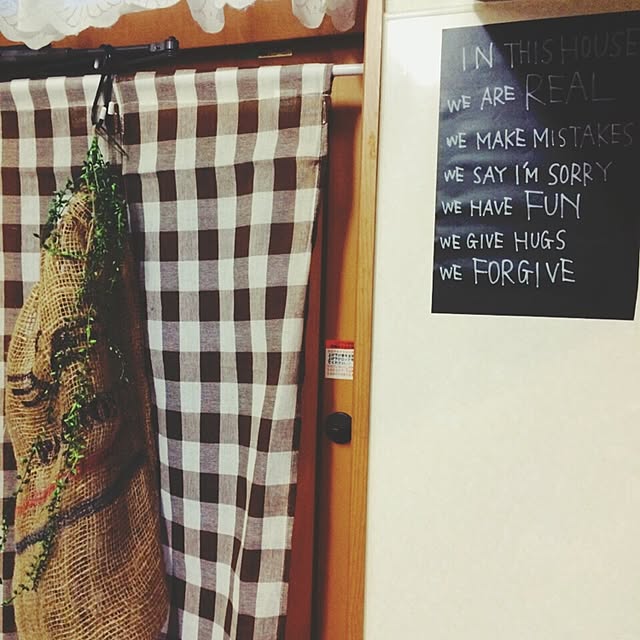 IN THIS HOUSE
WE ARE REAL
WE MAKE MISTAKES
WE SAY I'M SORRY
WE HAVE FUN
WE GIVE HUGS
WE FORGIVE